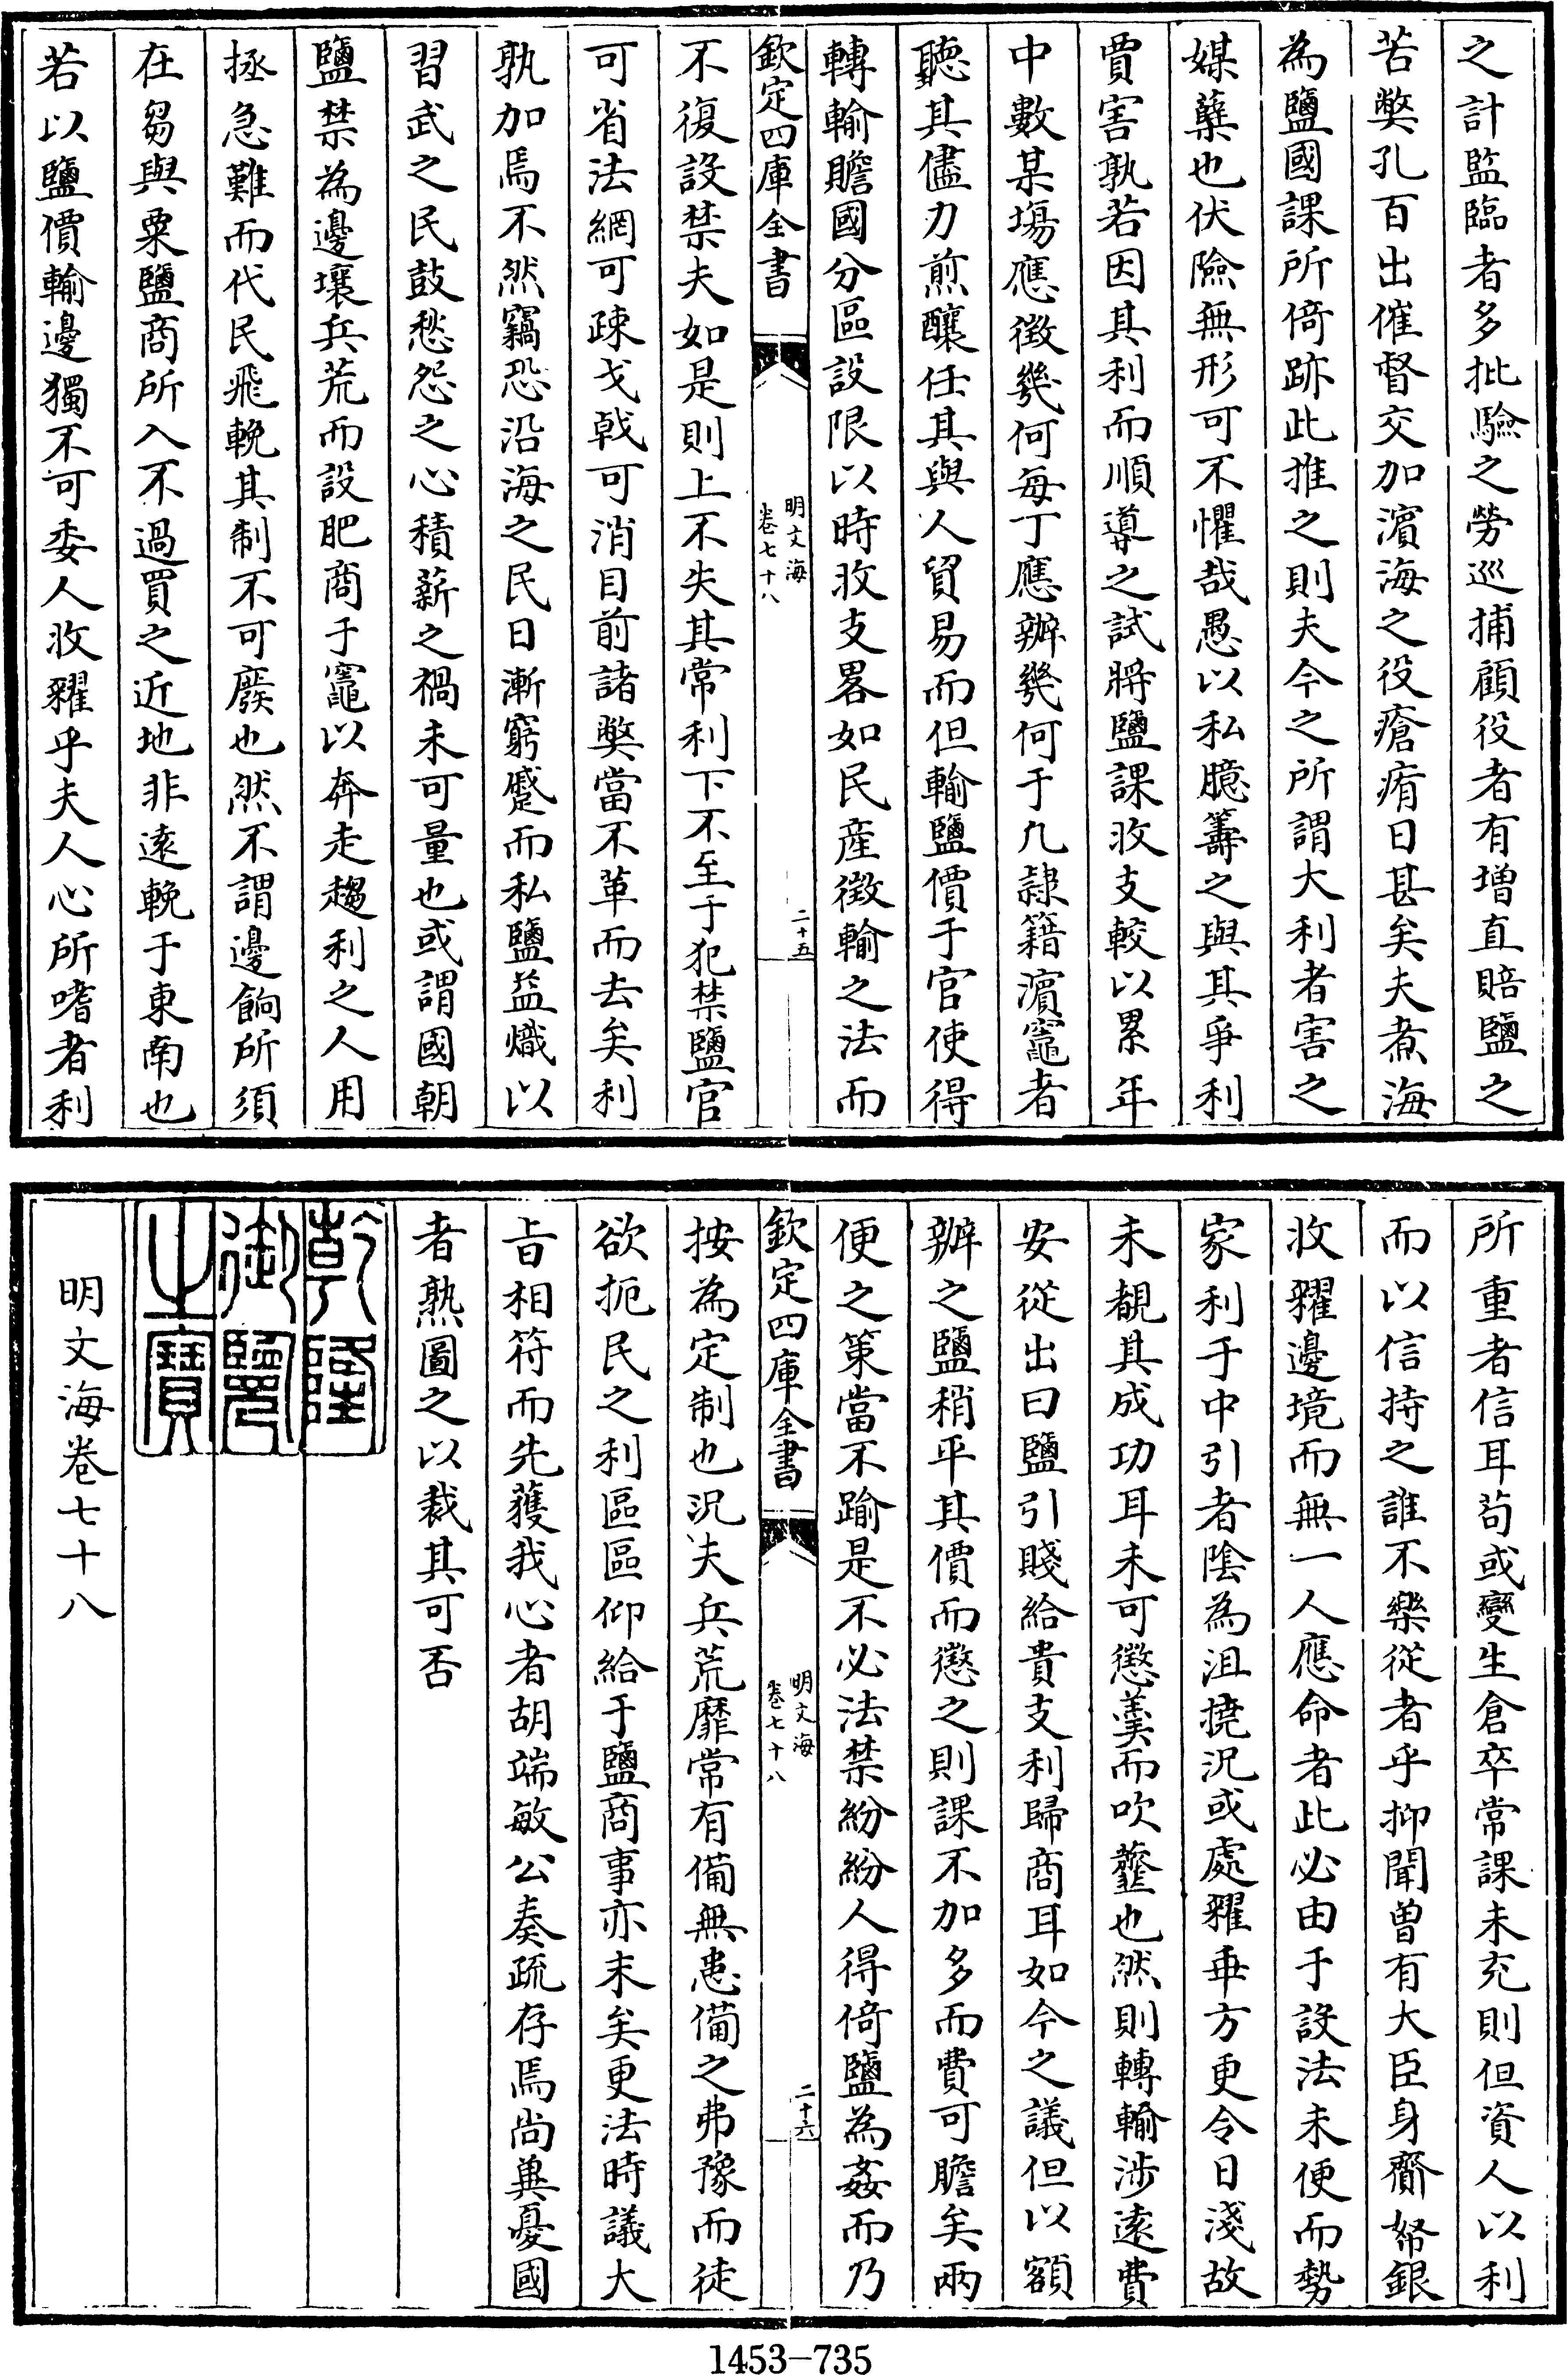 之計監臨者多批驗之勞巡捕顧役者有增直賠鹽之
苦弊孔百出催督交加濱海之役瘡痏日甚矣夫煮海
為鹽國課所倚跡此推之則夫今之所謂大利者害之
媒蘖也伏險無形可不懼哉愚以私臆籌之與其爭利
賈害孰若因其利而順導之試將鹽課收支較以累年
中數某塲應徵幾何每丁應辦幾何于凡隷籍濱竈者
聽其儘力煎釀任其與人貿易而但輸鹽價于官使得
轉輸贍國分區設限以時收支畧如民產徵輸之法而
欽定四庫全書
明文海
卷七十八
二十五
不復設禁夫如是則上不失其常利下不至于犯禁鹽官
可省法網可疎戈戟可消目前諸弊當不革而去矣利
孰加焉不然竊恐沿海之民日漸窮蹙而私鹽益熾以
習武之民鼓愁怨之心積薪之禍未可量也或謂國朝
鹽禁為邊壤兵荒而設肥商于竈以奔走趨利之人用
拯急難而代民飛輓其制不可廢也然不謂邊餉所須
在芻與粟鹽商所入不過買之近地非遠輓于東南也
若以鹽價輸邊獨不可委人收糴乎夫人心所嗜者利
所重者信耳苟或變生倉卒常課未充則但資人以利
而以信持之誰不樂從者乎抑聞曾有大臣身齎帑銀
收糴邊境而無一人應命者此必由于設法未便而勢
家利于中引者陰為沮撓況或處糴乖方更令日淺故
未覩其成功耳未可懲羹而吹虀也然則轉輸涉遠費
安從出曰鹽引賤給貴支利歸商耳如今之議但以額
辦之鹽稍平其價而懲之則課不加多而費可贍矣兩
便之策當不踰是不必法禁紛紛人得倚鹽為姦而乃
欽定四庫全書
明文海
卷七十八
二十六
按為定制也況夫兵荒靡常有備無患備之弗豫而徒
欲扼民之利區區仰給于鹽商事亦末矣更法時議大
旨相符而先獲我心者胡端敏公奏疏存焉尚兾憂國
者熟圖之以裁其可否
乾隆
御覽
之寶
明文海卷七十八
1453-735